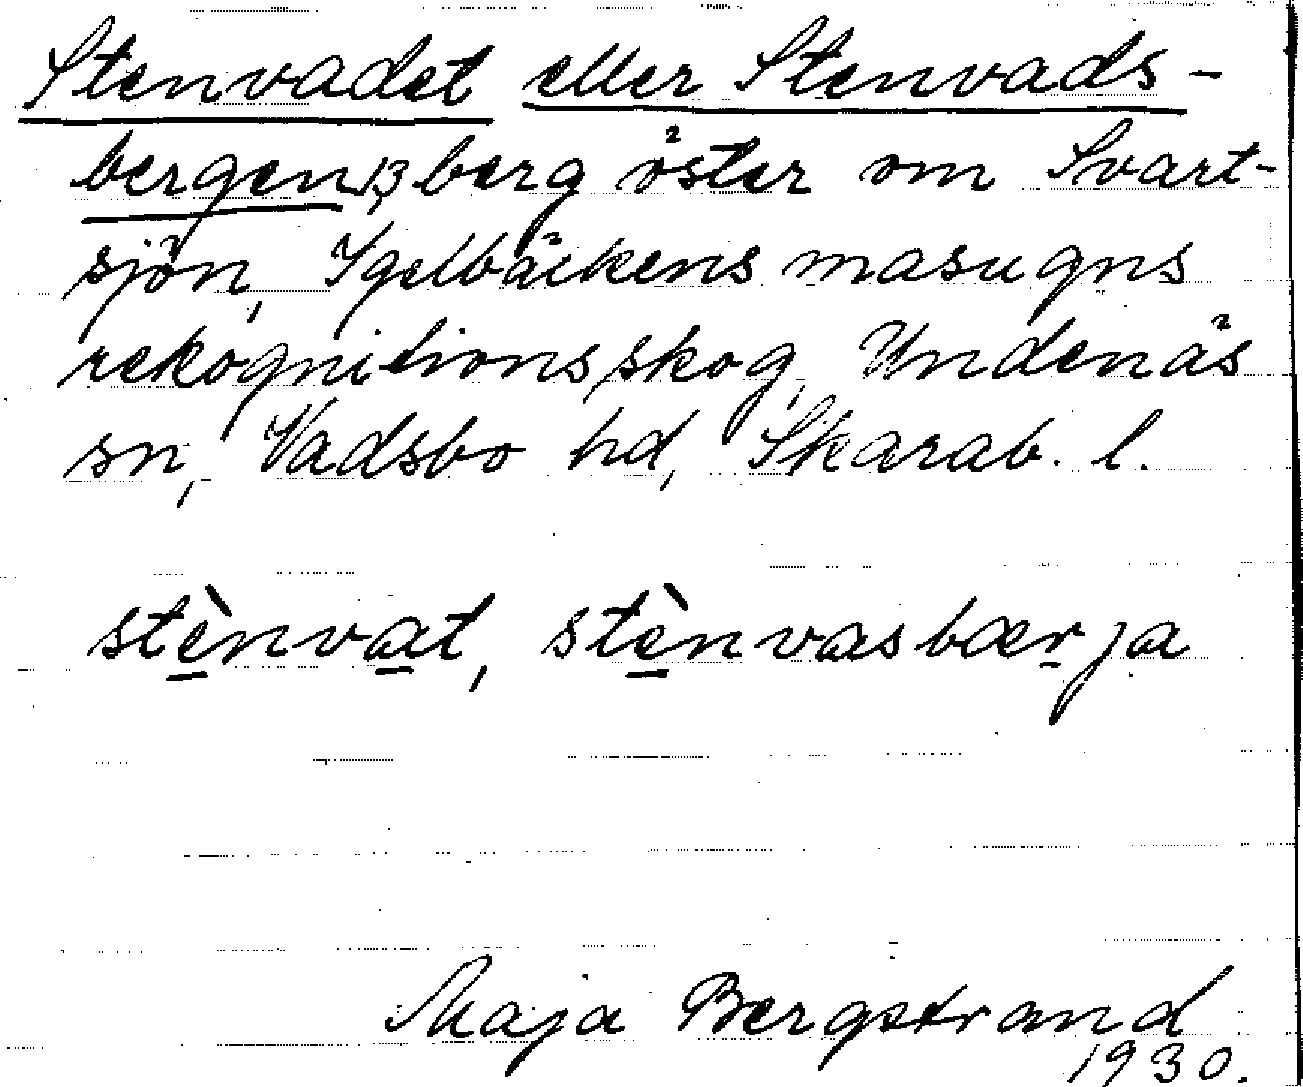 Stenvadet eller Stenvads-
bergen, 13, berg öster om Svart-
sjön, Igelbäckens masugns
rekognitionsskog, Undenäs
sn, Vadsbo hd, Skarab. l.
stènvat, stènvasbærja
Maja Bergstrand
1930.